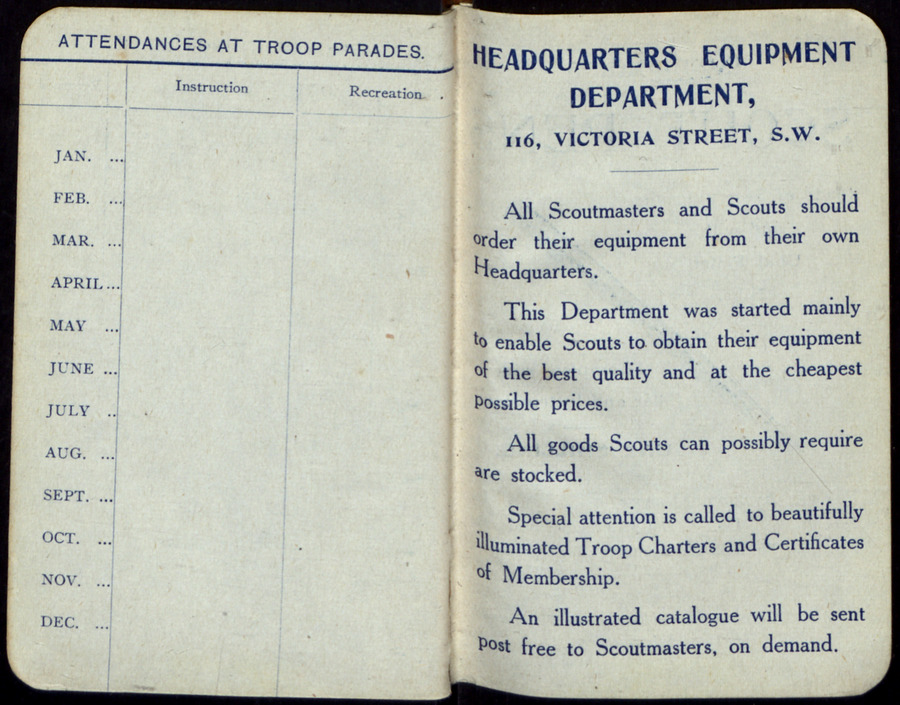 ATTENDANCES AT TROOP PARADES.
Instruction Recreation.
JAN. ...
FEB. ...
MAR. ...
APRIL...
MAY ...
JUNE ...
JULY ..
AUG. ...
SEPT. ...
OCT. ...
NOV. ...
DEC. ...
HEADQUARTERS EQUIPMENT
DEPARTMENT,
116, VICTORIA STREET, S.W.
All Scoutmasters and Scouts should
order their equipment from their own
Headquarters.
This Department was started mainly
to enable Scouts to obtain their equipment
of the best quality and at the cheapest
possible prices.
All goods Scouts can possibly require
are stocked.
Special attention is called to beautifully
illuminated Troop Charters and Certificates
of Membership.
An illustrated catalogue will be sent
post free to Scoutmasters, on demand.